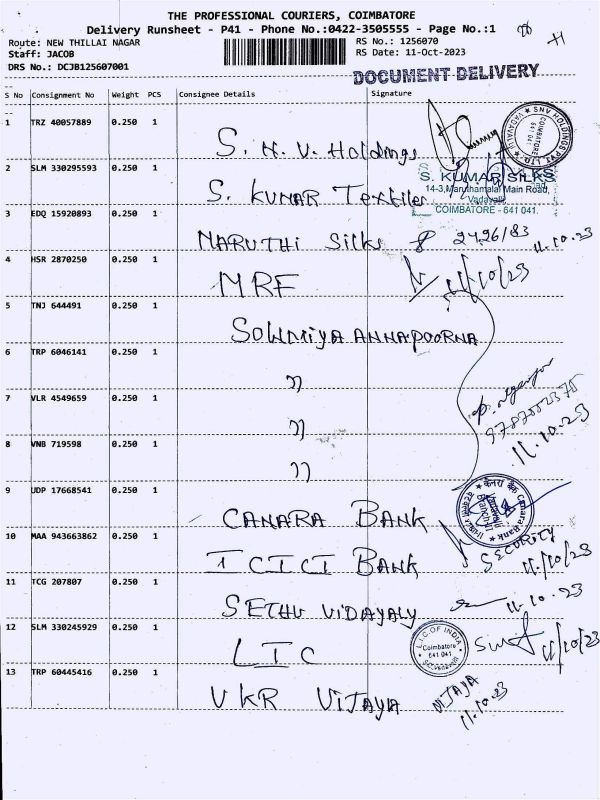 THE PROFESSIONAL COURIERS, COIMBATORE
Delivery Runsheet - P41 - Phone No.:0422-3505555 - Page No.:1
Route: NEW THILLAI NAGAR
Staff: JACOB
DRS No.: DCJB125607001
RS No.: 1256070
RS Date: 11-Oct-2023
DOCUMENT DELIVERY
S No Consignment No Weight PCS Consignee Details Signature
1 TRZ 40057889 0.250 1
S. N. V. Holdings
SNV HOLDINGS PVT LTD. VADAVALLI
COIMBATORE 641 041
2 SLM 330295593 0.250 1
S. KUMAR Textiles
S. KUMAR SILKS
14-3, Maruthamalai Main Road,
Vadavalli,
COIMBATORE - 641 041.
3 EDQ 15920893 0.250 1
MARUTHI Silks 2426/83 11.10.23
4 HSR 2870250 0.250 1
MRF 11/10/23
5 TNJ 644491 0.250 1
SOWMIYA ANNAPOORNA
6 TRP 6046141 0.250 1
"
7 VLR 4549659 0.250 1
"
11.10.23
8 VNB 719598 0.250 1
"
9 UDP 17668541 0.250 1
CANARA BANK
केनरा बैंक Canara Bank
10 MAA 943663862 0.250 1
ICICI BANK SECURITY 11/10/23
11 TCG 207807 0.250 1
SETHU VIDAYALY 11.10.23
12 SLM 330245929 0.250 1
LIC 11/10/23
L.I.C. OF INDIA
Coimbatore
641 041
13 TRP 60445416 0.250 1
VKR VIJAYA VIJAYA 11.10.23